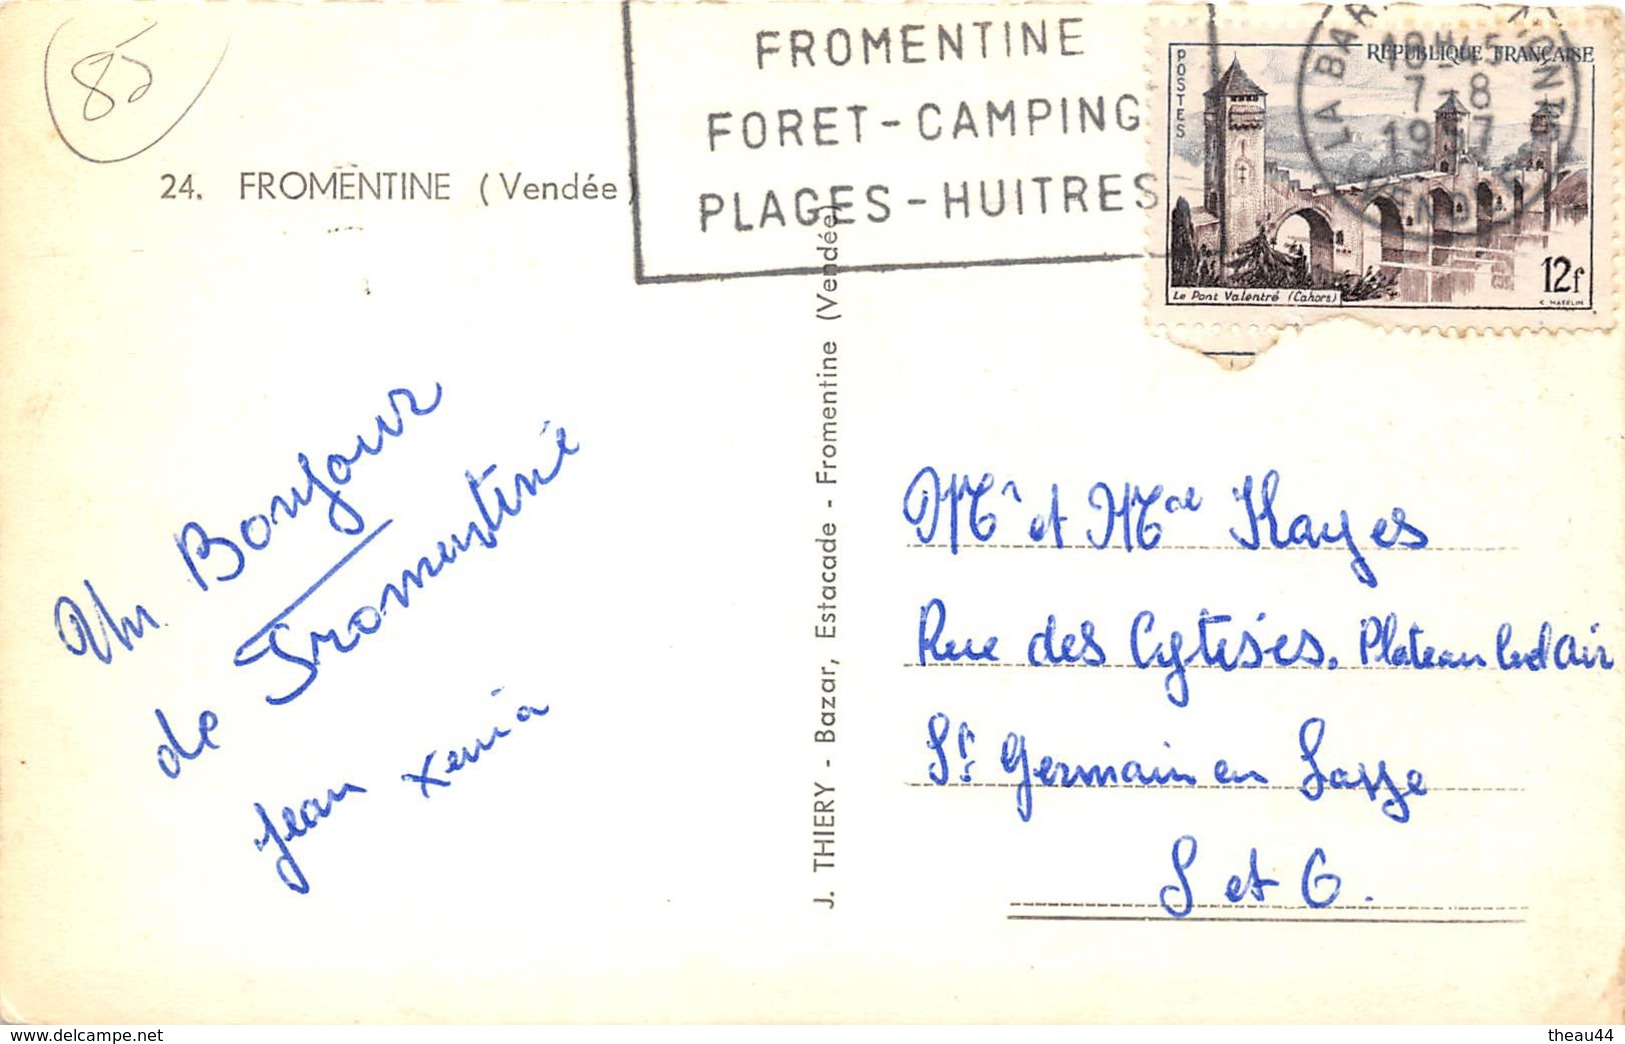 85
FROMENTINE
FORET-CAMPING
PLAGES-HUITRES
POSTES
REPUBLIQUE FRANÇAISE
Le Pont Valentré (Cahors)
12f
7-8
1957
24. FROMENTINE (Vendée)
Un Bonjour
de Fromentine
Jean Xenia
J. THIERY - Bazar, Estacade - Fromentine (Vendée)
Mr et Mme Hayes
Rue des Cytises. Plateau Bel air
St Germain en Laye
S et O.
www.delcampe.net
theau44